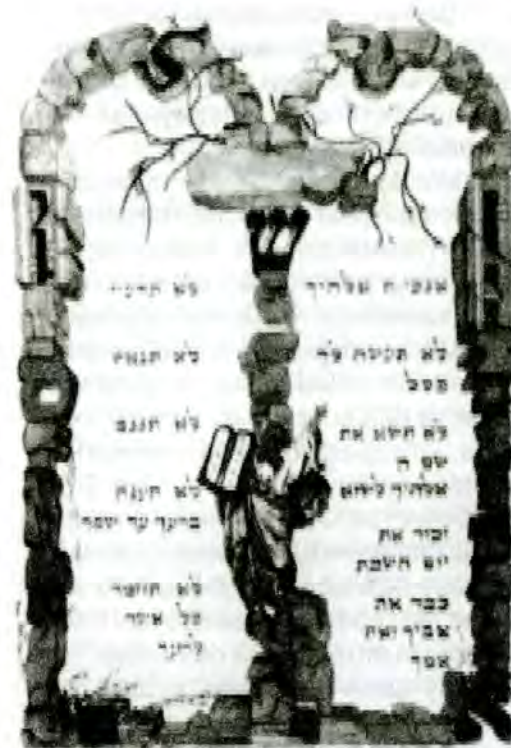 אנכי ה אלהיך
לא תעשה לך
פסל
לא תשא את
שם ה
אלהיך לשוא
זכור את
יום השבת
כבד את
אביך ואת
אמך
לא תרצח
לא תנאף
לא תגנב
לא תענה
ברעך עד שקר
לא תחמד
כל אשר
לרעך